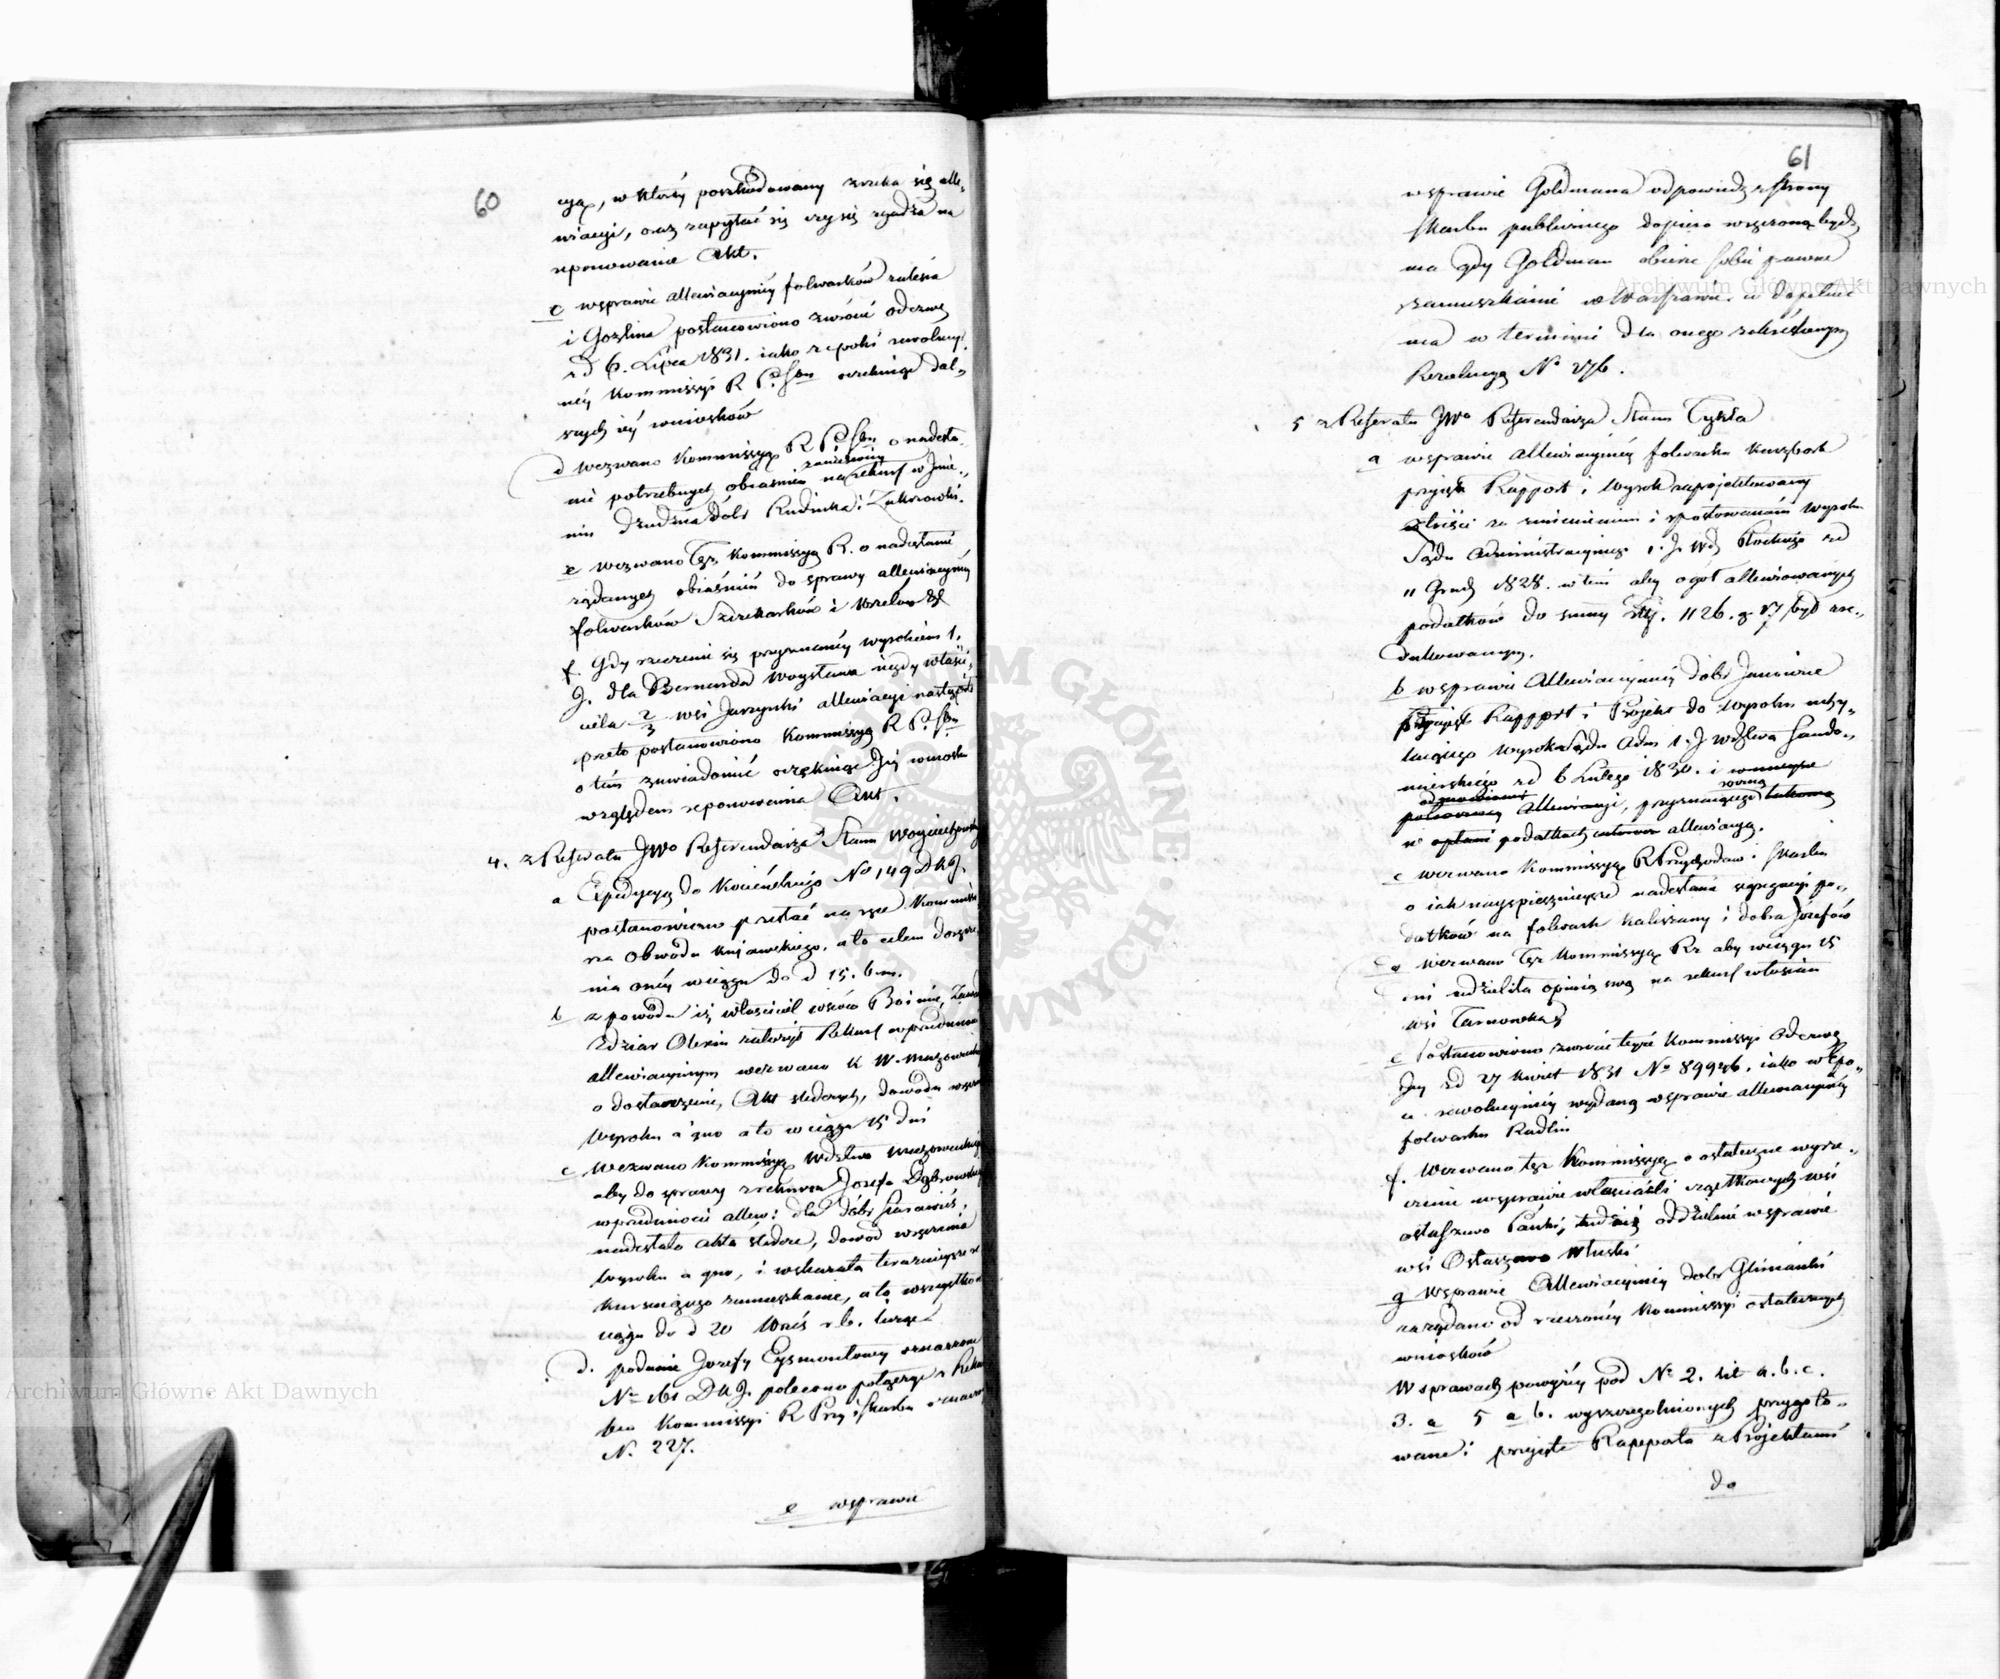 60
cyą, w któréy poszkodowany zrzeka się alle-
wiacyi, oraz zapytać się czy się zgadza na
reponowanie Akt.
c wsprawie allewiacyinéy folwarków Zalesia
i Gozlina postanowiono zwrócić odezwę
z d 6. Lipca 1831. iako z epoki rewolucyi-
néy Kommissyi R P. i Sbu oczekuiąc dal-
szych iéy wniosków
d wezwano Kommissyą R P. i Sbu o nadesła-
nie potrzebnych obiaśnień na zaniesiony rekurs w Imie-
niu Dziedzica Dóbr Rudnika i Zakrzowki.
e wezwano Tęż Kommissyą R. o nadesłanie
żądanych obiaśnień do sprawy allewiacyinéy
folwarków Szczekarków i Wrzelów
f. Gdy zrzeczenie się przyznanéy wyrokiem 1.
J. dla Bernarda Woysława niegdy właści-
ciela 2/3 wsi Jarzynki allewiacyi nastąpiło
przeto postanowiono Kommissyą R P. i Sbu
o tém zawiadomić oczekuiąc Jéy wniosku
względem reponowania Akt.
4. z Referatu JWo Referendarza Stanu Woyciechowski
a Expedycyą do Kocieńskiego No 149 DKJ.
postanowiono przesłać na ręce Kommissa-
rza Obwodu Kujawskiego, a to celem doręcze-
nia onéy wciągu do d 15. b.m.
b z powodu iż właściciel wsiów
Zdziar Olexin założył Rekurs w przedmiocie
allewiacyinym wezwano K W. Mazowiecką
o dostarczenie, Akt śledczych, dowodu wręcz
Wyroku a quo a to w ciągu 15 dni
c wezwano Kommissyą Wdztwa Mazowieckiego
aby do sprawy z rekursu Józefa Dąbrowskiego
w przedmiocie allew: dla dóbr
nadesłała akta śledcze, dowód wręczenia
Wyroku a quo, i wskazała teraźnieysze re-
kuruiącego zamieszkanie, a to wszystko w
ciągu do d 20 b.
d. podanie Jozefy Eysmontowey oznaczone
No 161 DKJ. polecono połączyć z Rekur
sem Kommissyi R Przy i Skarbu oznaczo
N. 227.
e wsprawie
61
wsprawie Goldmana odpowiedz z strony
Skarbu publicznego dopiero wręczoną będz
ma gdy Goldman obierze sobie prawne
zamieszkanie w Warszawie, w dopełnie
nia w terminie dla onego zakreślonym
Rezolucyą No 276.
5 z Referatu JWo Referendarza Stanu Tyzla
a wsprawie allewiacyinéy folwarku
przyięto Rapport i Wyrok zaprojektowany
treści za zniesieniem i sprostowaniem Wyroku
Sądu Administracyinego 1. J. Wdz Płockiego z d
11 Grud 1828. w tém aby ogół allewiowanych
podatków do summy Złtp. 1126. g 17 był zre-
dukowanym.
b wsprawie Allewiacyinéy dobr Janowice
Przyięto Rapport i Projekt do Wyroku uchy-
laiącego Wyrok Sądu Adm 1. J Wdztwa Sando-
mierskiego z d 6 Lutego 1830. i
allewiacyi, przyznaiącego
w opłacie podatkach allewiacyą.
c wezwano Kommissyą R Przychodów i Skarbu
o iak nayspiesznieysze nadesłanie segregacyi po-
datków na folwark Kaliszany i dobra Józefów
d Wezwano Tęż Kommissyą Rz aby wciągu 15
dni udzieliła opinią swą na rekurs włościan
wsi Tarnowka
e Postanowiono zwrócić teyże Kommissyi Odezwę
Jéy z d 27 Kwiet 1831 No 89946. iako w Epo-
ce rewolucyinéy wydaną wsprawie allewiacyinéy
folwarku Radlin
f. Wezwano też Kommissyą o ostateczne wyrze-
czenie wsprawie właścicieli cząstkowych wsi
Ostaszewo Pańki, tudzież oddzielnie wsprawie
wsi Ostaszewo Włuski
g Wsprawie Allewiacyinéy dobr Glinianki
zażądano od rzeczonéy Kommissyi ostatecznych
wniosków
W sprawach powyżéy pod No 2. lit a. b. c.
3. a 5 a b. wyszczególnionych przygoto-
wane i przyięte Rapporta z Projektami
do
Archiwum Główne Akt Dawnych
Archiwum Główne Akt Dawnych
ARCHIWUM GŁÓWNE AKT DAWNYCH